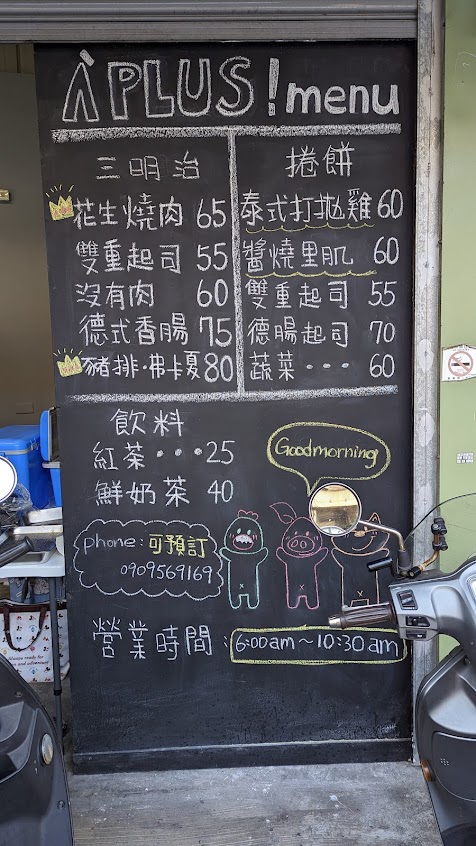 À PLUS! menu
三明治
花生燒肉 65
雙重起司 55
沒有肉 60
德式香腸 75
豬排·弗卡夏 80
捲餅
泰式打拋雞 60
醬燒里肌 60
雙重起司 55
德腸起司 70
蔬菜··· 60
飲料
紅茶···25
鮮奶茶 40
Goodmorning
phone:可預訂
0909569169
營業時間:6:00am~10:30am